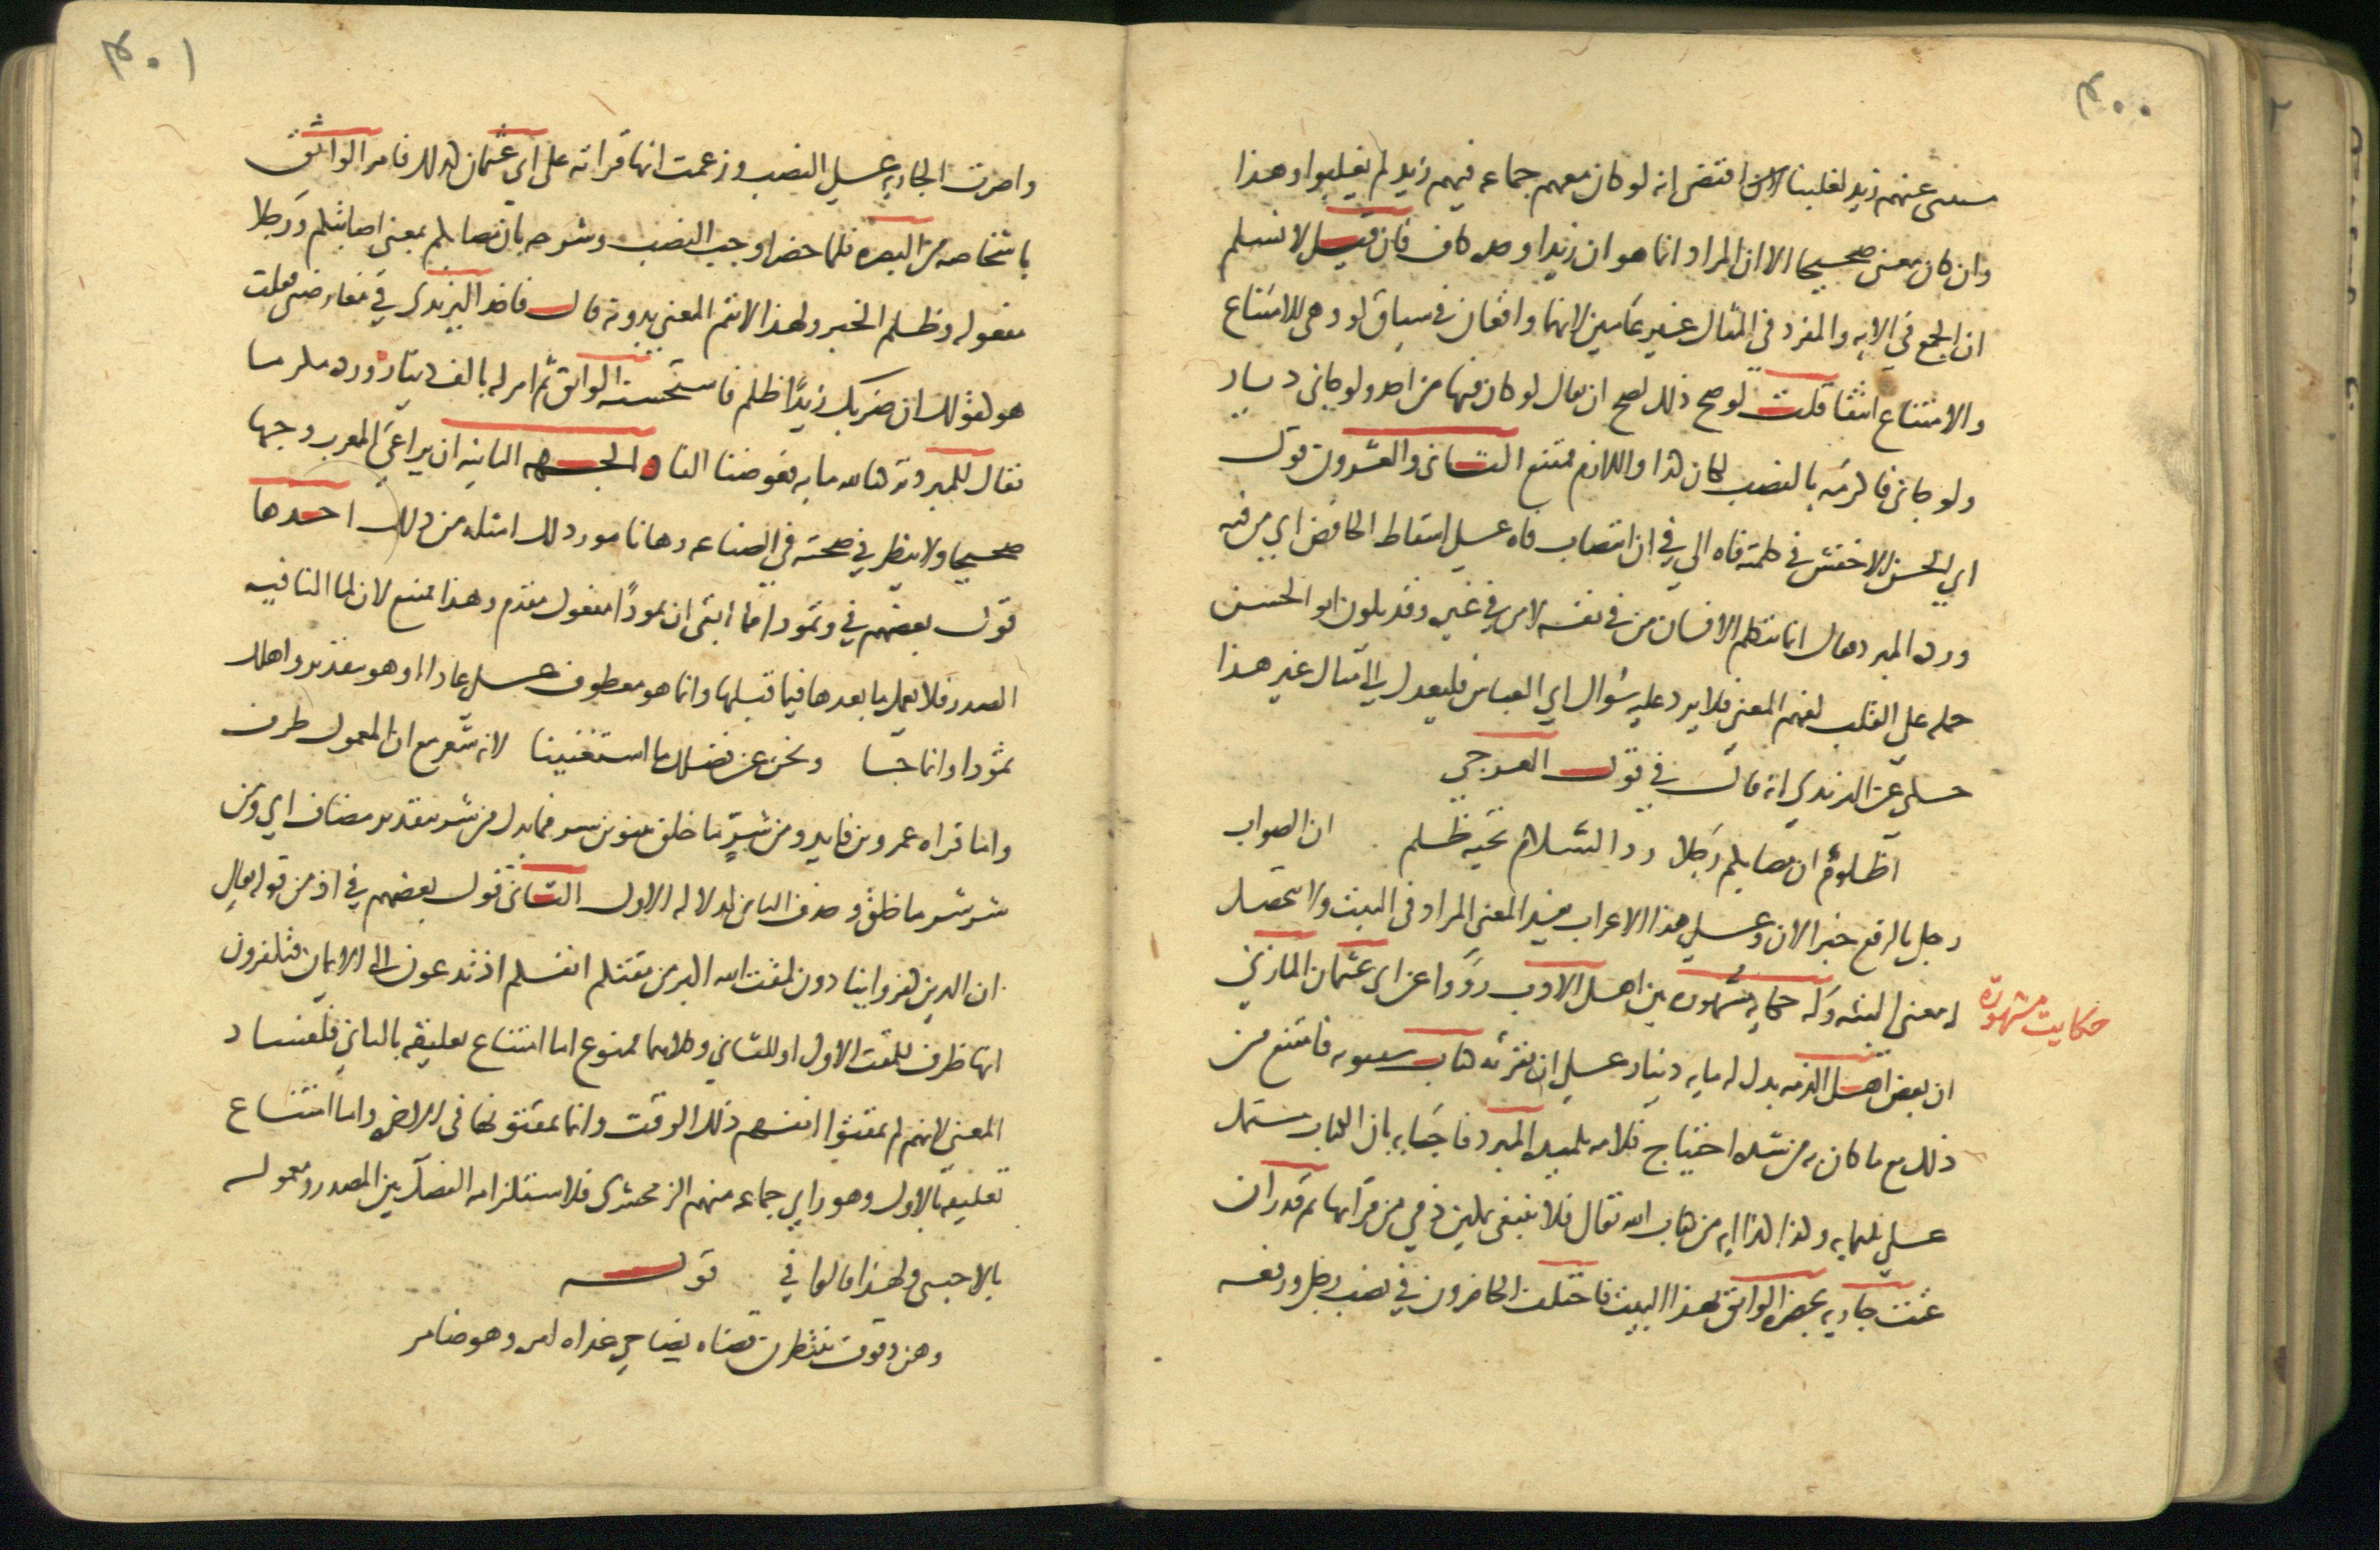 ٤٠٠
مستثنى عنهم زيد لغلبنا لاقتضى انه لو كان معهم جماعه فيهم زيد لم يغلبوا وهذا
وان كان معنى صحيحا الا ان المراد انما هو ان زيدا وحده كاف فان قيل لا نسلم
ان الجمع في الايه والمفرد في المثال غير عامين لانهما واقعان في سياق لو وهى للامتناع
والامتناع انتفا قلت لو صح ذلك لصح ان يقال لو كان فيها من احد ولو جانى ديار
ولو جانى فاكرمه بالنصب لكان كذا واللازم ممتنع الثانى والعشرون قول
ابي الحسن الاخفش في كلمته فاه الي في ان انتصاب فاه على اسقاط الخافض اي من فيه
ورده المبرد فقال انما يتكلم الانسان من في نفسه لا من في غيره وقد يكون ابو الحسن
حمله على القلب لفهم المعنى فلا يرد عليه سؤال ابي العباس فليعدل الى مثال غير هذا
حكي عن اليزيدي انه قال في قول العرجي
أظلوم ان مصابكم رجلا رد السلام تحية ظلم ان الصواب
رجل بالرفع خبرا لان وعلى هذا الاعراب يفسد المعنى المراد في البيت ولا يتحصل
له معنى البته وله حكايه مشهوره بين اهل الادب رووا عن ابى عثمان المازني
حكايت مشهورة
ان بعض اهل الذمه بذل له مايه دينار على ان يقرئه كتاب سيبويه فامتنع من
ذلك مع ما كان به من شده احتياج فلامه تلميذه المبرد فاجابه بان الكتاب مشتمل
على ثلثمايه وكذا كذا ايه من كتاب الله تعالى فلا ينبغى تمكين ذمي من قرأتها ثم قدر ان
غنت جاريه بحضرة الواثق بهذا البيت فاختلف الحاضرون في نصب رجل ورفعه
٤٠١
واصرت الجاريه على النصب وزعمت انها قراته على ابي عثمان كذلك فامر الواثق
باشخاصه من البصره فلما حضر اوجب النصب وشرحه بان مصابكم بمعنى اصابتكم ورجلا
مفعوله وظلم الخبر ولهذا لا يتم المعنى بدونه قال فاخذ اليزيدى في معارضتى فقلت
هو كقولك ان ضربك زيدًا ظلم فاستحسنه الواثق ثم امر له بالف دينار ورده مكرما
فقال للمبرد تركنا لله مايه فعوضنا الفا الجهه الثانيه ان يراعي المعرب وجها
صحيحا ولا ينظر في صحته في الصناعه وها انا مورد لك امثله من ذلك احدها
قول بعضهم في وثمودا فما ابقى ان ثمودًا مفعول مقدم وهذا ممتنع لان لما النافيه
الصدر فلا يعمل ما بعدها فيما قبلها وانما هو معطوف على عادا او هو بتقدير واهلك
ثمودا وانما جا ونحن عن فضلك ما استغنينا لانه شعر مع ان المعمول ظرف
واما قراه عمرو بن فايد ومن شرٍ ما خلق بتنوين شر فما بدل من شر بتقدير مضاف اي من
شر شر ما خلق وحذف الثاني لدلاله الاول الثانى قول بعضهم في اذ من قوله تعالى
ان الذين كفروا ينادون لمقت الله اكبر من مقتكم انفسكم اذ تدعون الى الايمان فتكفرون
انها ظرف للمقت الاول او للثاني وكلاهما ممنوع اما امتناع تعليقه بالثاني فلفساد
المعنى لانهم لم يمقتوا انفسهم ذلك الوقت وانما يمقتونها في الاخره واما امتناع
تعليقه بالاول وهو راي جماعه منهم الزمخشرى فلاستلزامه الفصل بين المصدر ومعموله
بالاجنبى ولهذا قالوا في قوله
وهن وقوف ينتظرن قضاه بضاحي عذاه امره وهو ضامر